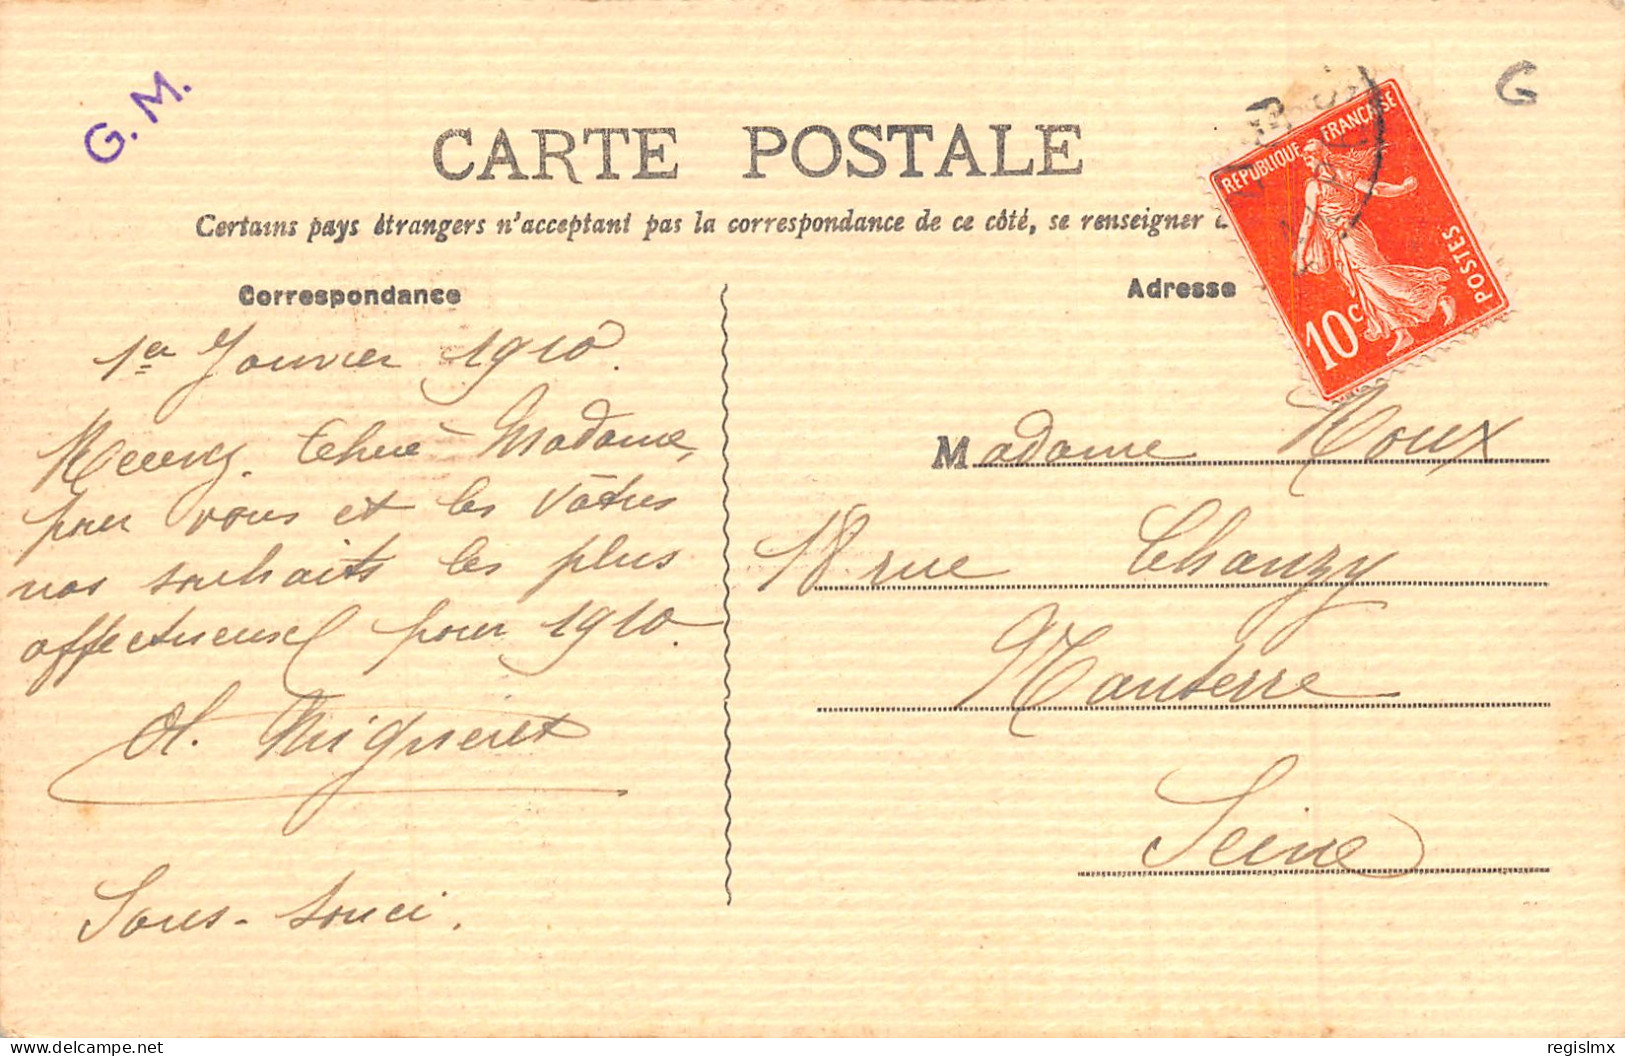 G. M.
G
CARTE POSTALE
Certains pays étrangers n'acceptant pas la correspondance de ce côté, se renseigner
Correspondance
1er Janvier 1910.
chère Madame,
pour vous et les vôtres
nos souhaits les plus
affectueux pour 1910.
Migneret
Sans-souci.
Adresse
REPUBLIQUE FRANÇAISE
POSTES
10c
Madame Roux
18 rue Chanzy
Nanterre
Seine
delcampe.net
regislmx